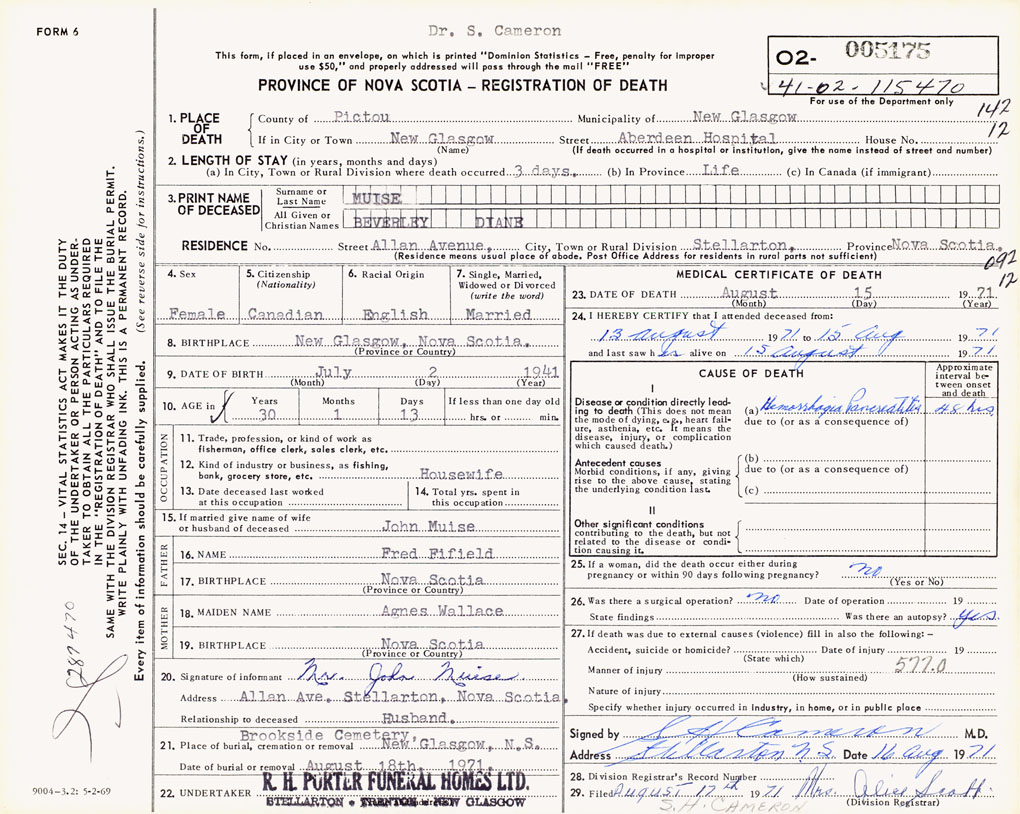 FORM 6
Dr. S. Cameron
This form, if placed in an envelope, on which is printed "Dominion Statistics – Free, penalty for improper
use $50," and properly addressed will pass through the mail "FREE"
PROVINCE OF NOVA SCOTIA – REGISTRATION OF DEATH
O2- 005175
41-02-115470
For use of the Department only
142
12
1. PLACE OF DEATH
County of Pictou Municipality of New Glasgow
If in City or Town New Glasgow Street Aberdeen Hospital House No.
(Name) (If death occurred in a hospital or institution, give the name instead of street and number)
2. LENGTH OF STAY (in years, months and days)
(a) In City, Town or Rural Division where death occurred 3 days. (b) In Province Life (c) In Canada (if immigrant)
3. PRINT NAME OF DECEASED
Surname or Last Name MUISE
All Given or Christian Names BEVERLEY DIANE
RESIDENCE No. Street Allan Avenue, City, Town or Rural Division Stellarton, Province Nova Scotia.
(Residence means usual place of abode. Post Office Address for residents in rural parts not sufficient)
092
12
4. Sex
Female
5. Citizenship
(Nationality)
Canadian
6. Racial Origin
English
7. Single, Married,
Widowed or Divorced
(write the word)
Married
8. BIRTHPLACE New Glasgow, Nova Scotia.
(Province or Country)
9. DATE OF BIRTH July 2 1941
(Month) (Day) (Year)
10. AGE in
Years Months Days If less than one day old
30 1 13 hrs. or min.
OCCUPATION
11. Trade, profession, or kind of work as
fisherman, office clerk, sales clerk, etc.
12. Kind of industry or business, as fishing,
bank, grocery store, etc. Housewife
13. Date deceased last worked
at this occupation
14. Total yrs. spent in
this occupation
15. If married give name of wife
or husband of deceased John Muise
FATHER
16. NAME Fred Fifield
17. BIRTHPLACE Nova Scotia
(Province or Country)
MOTHER
18. MAIDEN NAME Agnes Wallace
19. BIRTHPLACE Nova Scotia
(Province or Country)
20. Signature of informant Mr. John Muise
Address Allan Ave. Stellarton, Nova Scotia,
Relationship to deceased Husband.
Brookside Cemetery,
21. Place of burial, cremation or removal New Glasgow, N.S.
Date of burial or removal August 18th, 1971.
22. UNDERTAKER R. H. PORTER FUNERAL HOMES LTD.
STELLARTON • TRENTON • NEW GLASGOW
MEDICAL CERTIFICATE OF DEATH
23. DATE OF DEATH August 15 1971
(Month) (Day) (Year)
24. I HEREBY CERTIFY that I attended deceased from:
13 August 1971 to 15 Aug 1971
and last saw her alive on 15 August 1971
CAUSE OF DEATH
Approximate
interval be-
tween onset
and death
I
Disease or condition directly lead-
ing to death (This does not mean
the mode of dying, e.g., heart fail-
ure, asthenia, etc. It means the
disease, injury, or complication
which caused death.)
(a) Hemorrhagic Pancreatitis 48 hrs
due to (or as a consequence of)
Antecedent causes
Morbid conditions, if any, giving
rise to the above cause, stating
the underlying condition last.
(b)
due to (or as a consequence of)
(c)
II
Other significant conditions
contributing to the death, but not
related to the disease or condi-
tion causing it.
25. If a woman, did the death occur either during
pregnancy or within 90 days following pregnancy? no
(Yes or No)
26. Was there a surgical operation? no Date of operation 19
State findings Was there an autopsy? yes.
27. If death was due to external causes (violence) fill in also the following: –
Accident, suicide or homicide? Date of injury 19
(State which)
577.0
Manner of injury
(How sustained)
Nature of injury
Specify whether injury occurred in industry, in home, or in public place
Signed by S H Cameron M.D.
Address Stellarton N.S. Date 16 Aug 1971
28. Division Registrar's Record Number
29. Filed August 17th 1971 Mrs. Alice Scott
(Division Registrar)
S.H. CAMERON
SEC. 14 – VITAL STATISTICS ACT MAKES IT THE DUTY
OF THE UNDERTAKER OR PERSON ACTING AS UNDER-
TAKER TO OBTAIN ALL THE PARTICULARS REQUIRED
IN THE "REGISTRATION OF DEATH" AND TO FILE THE
SAME WITH THE DIVISION REGISTRAR WHO SHALL ISSUE THE BURIAL PERMIT.
WRITE PLAINLY WITH UNFADING INK. THIS IS A PERMANENT RECORD.
Every item of information should be carefully supplied. (See reverse side for instructions.)
287470
9004-3.2: 5-2-69